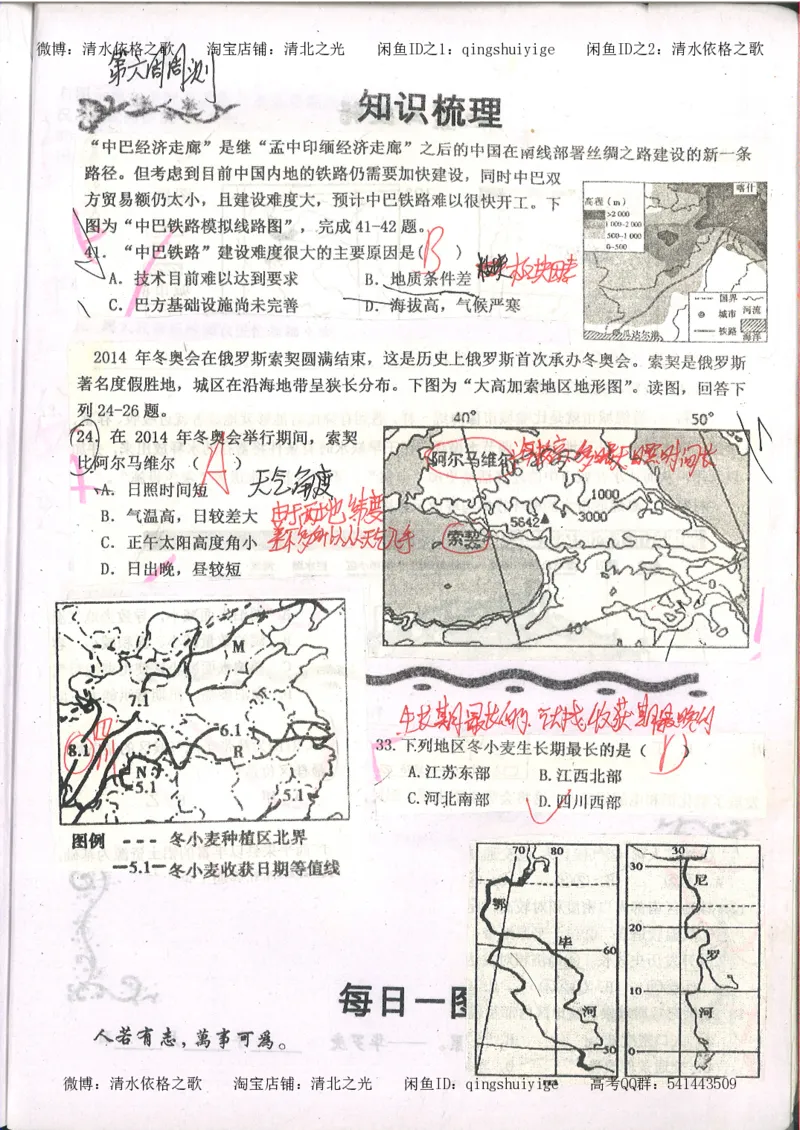 微博：清水依格之歌 淘宝店铺：清北之光 闲鱼ID之1：qingshuiyige 闲鱼ID之2：清水依格之歌
第六周周测
知识梳理
“中巴经济走廊”是继“孟中印缅经济走廊”之后的中国在南线部署丝绸之路建设的新一条
路径。但考虑到目前中国内地的铁路仍需要加快建设，同时中巴双
方贸易额仍太小，且建设难度大，预计中巴铁路难以很快开工。下
图为“中巴铁路模拟线路图”，完成41-42题。
41．“中巴铁路”建设难度很大的主要原因是( B )
A．技术目前难以达到要求 B．地质条件差
C．巴方基础设施尚未完善 D．海拔高，气候严寒
喀什
高程（m）
>2 000
1 000~2 000
500~1 000
0~500
国界
城市 河流
铁路 海洋
瓜达尔港
2014 年冬奥会在俄罗斯索契圆满结束，这是历史上俄罗斯首次承办冬奥会。索契是俄罗斯
著名度假胜地，城区在沿海地带呈狭长分布。下图为“大高加索地区地形图”。读图，回答下
列24-26题。
24．在 2014 年冬奥会举行期间，索契
比阿尔马维尔（ A ）
A．日照时间短 天气角度
B．气温高，日较差大 由于两地纬度
C．正午太阳高度角小
D．日出晚，昼较短
40° 50°
阿尔马维尔
1000
5642 3000
索契
40°
M
7.1
8.1 四川
6.1
R
N
5.1
5.1
图例 冬小麦种植区北界
5.1 冬小麦收获日期等值线
33. 下列地区冬小麦生长期最长的是（ D ）
A. 江苏东部 B. 江西北部
C. 河北南部 D. 四川西部
70 80
鄂
毕
60
河
50
30
30
尼
20
罗
10
河
0
每日一图
人若有志，萬事可爲。
微博：清水依格之歌 淘宝店铺：清北之光 闲鱼ID：qingshuiyige 高考QQ群：541443509